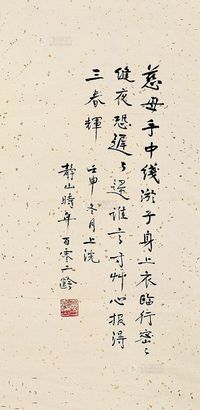 慈母手中线游子身上衣临行密〻
缝夜恐迟〻还谁言寸艸心报得
三春辉
壬申冬月上浣
静山时年百零二龄